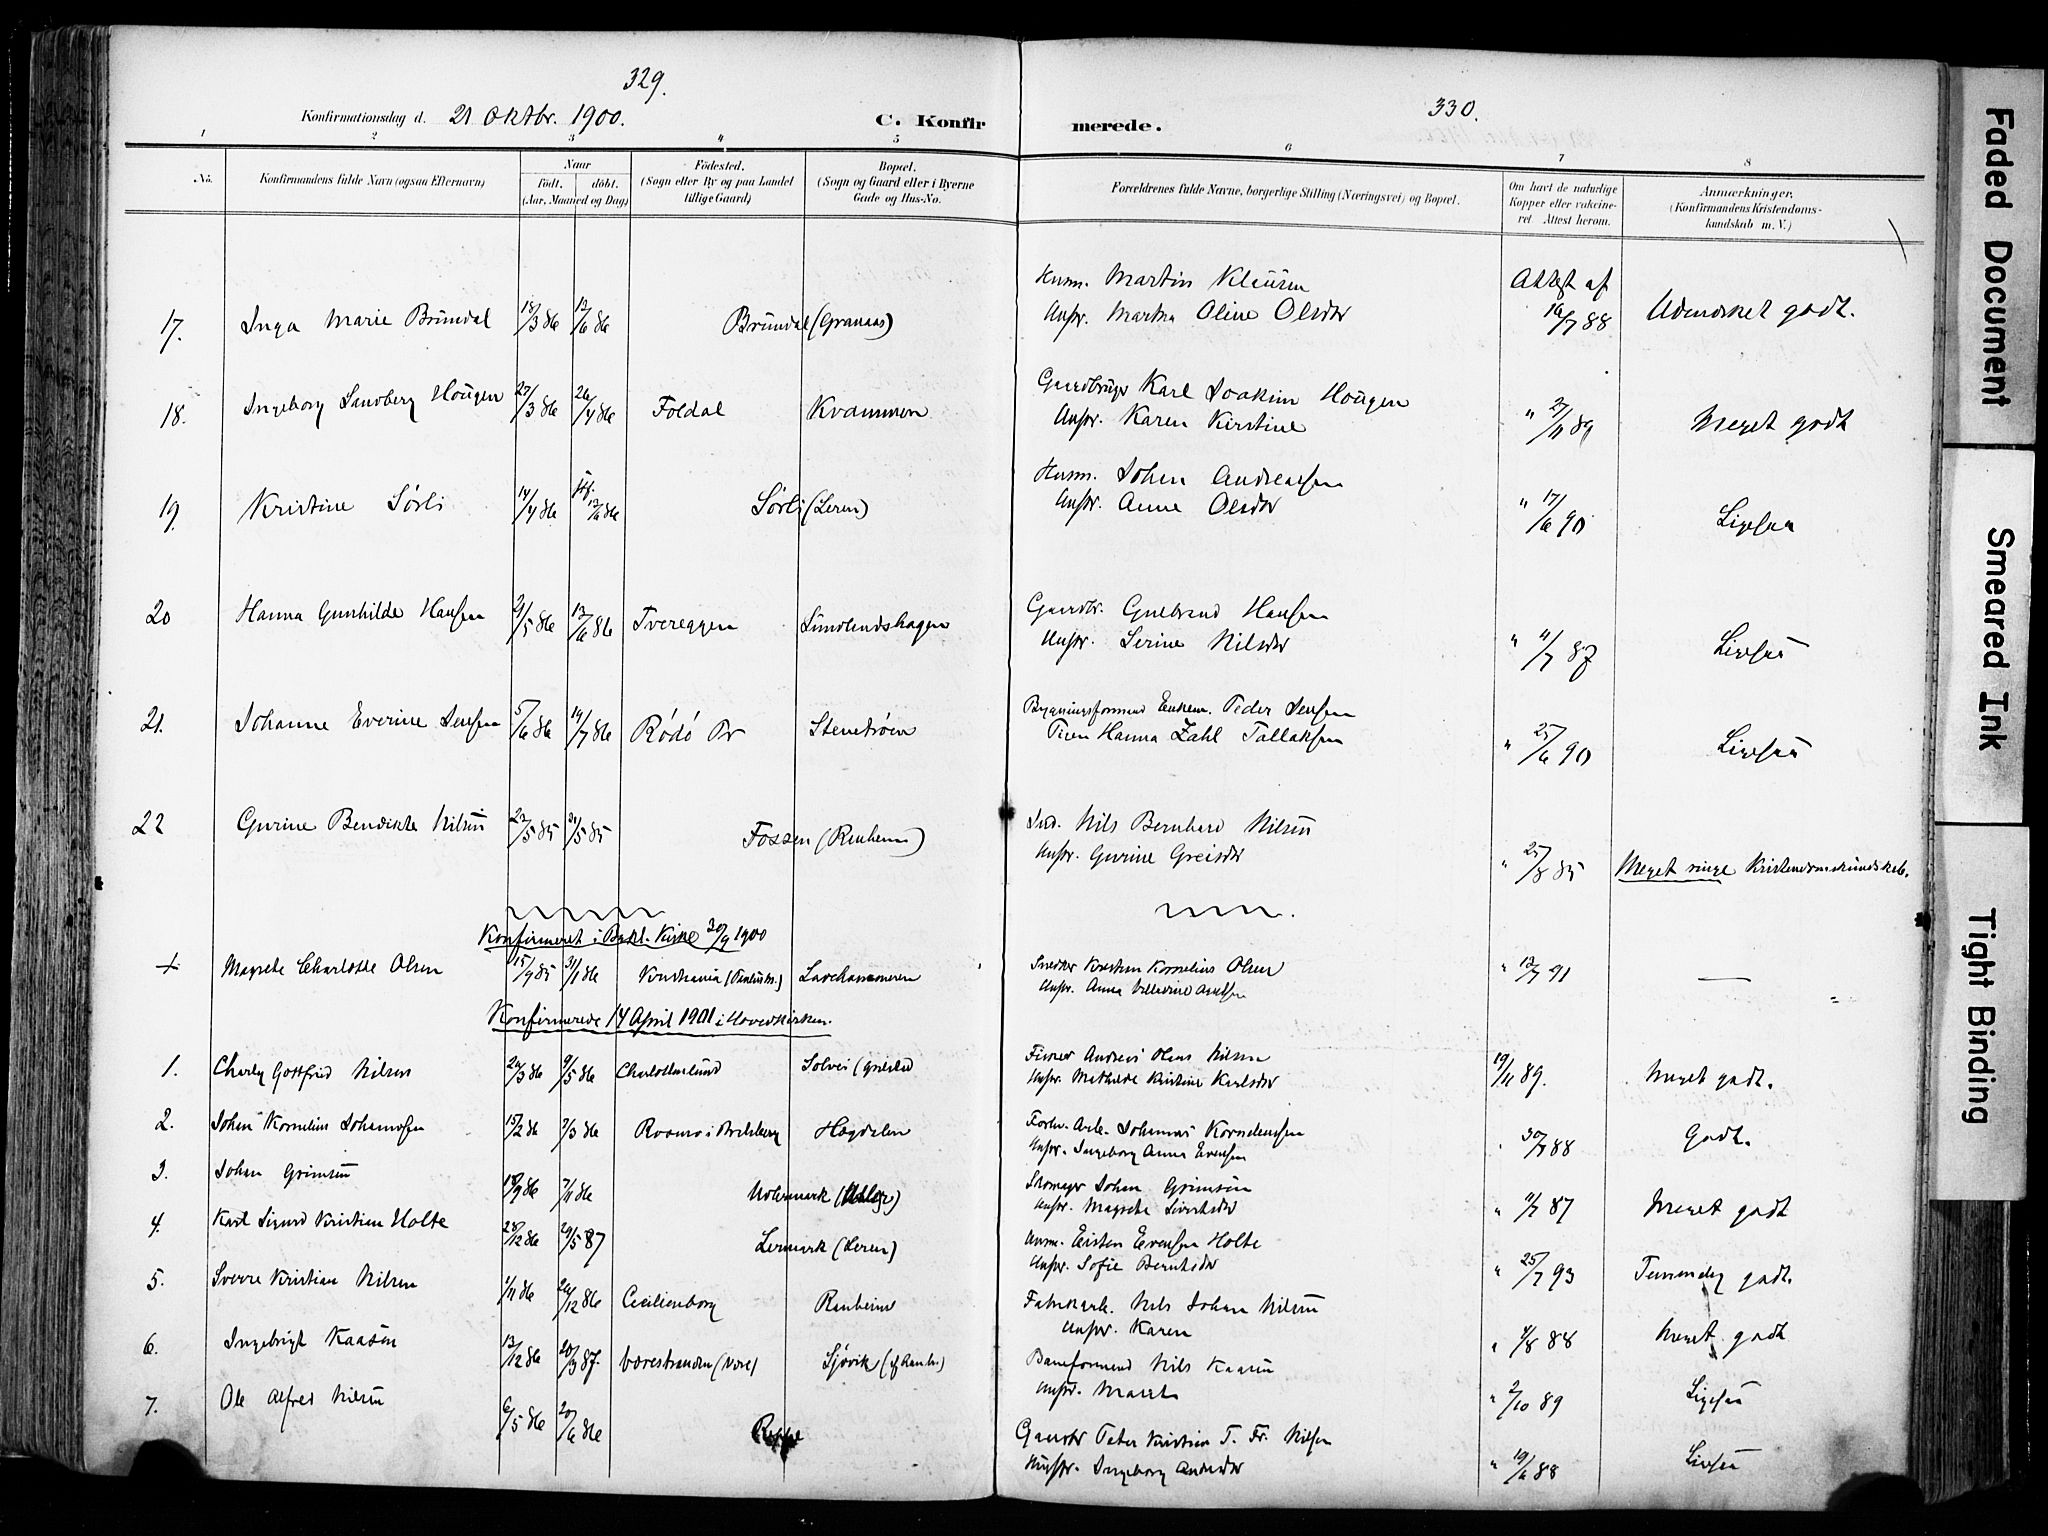 329.
330.
Konfirmationsdag d. 21 Oktbr. 1900.
C. Konfir
merede.
1 2 3 4 5 6 7 8
No.
Konfirmandens fulde Navn (ogsaa Efternavn)
Naar
født. døbt.
(Aar, Maaned og Dag)
Fødested.
(Sogn eller By og paa Landet
tillige Gaard)
Bopæl.
(Sogn og Gaard eller i Byerne
Gade og Hus-No.
Forældrenes fulde Navne, borgerlige Stilling (Næringsvei) og Bopæl.
Om havt de naturlige
Kopper eller vakcine-
ret. Attest herom.
Anmærkninger.
(Konfirmandens Kristendoms-
kundskab m. V.)
17. Inga Marie Bründal 18/3 86 12/6 86 Bründal (Granaas)
Husm. Martin
Hustr. Martha Oline Olsdtr
Attest af
16/7 88 Udmerket godt.
18. Ingeborg Sandberg Hougen 27/3 86 26/4 86 Foldal Kvammen
Gaardbruger Karl Joakim Hougen
Hustr. Karen Kirstine
" 27/11 89 Meget godt
19. Kristine Sørli 14/4 86 Hj. 12/6 86 Sørli (Leren)
Husm. Johan Andreassen
Hustr. Anne Olsdtr
" 17/6 90 Ligesaa
20 Hanna Gunhilde Hansen 2/5 86 13/6 86 Tvereggen Sundlandshagen
Gaardbr. Gulbrand Hansen
Hustr. Serine Nilsdtr
" 11/7 87 Ligesaa
21. Johanne Everine Jensen 5/6 86 14/7 86 Rødø Pr Stenstrøen
Bygningsformand Enkem. Peder Jensen
Hanna Zahl Tollaksen
" 25/6 90 Ligesaa
22 Gurine Bendikte Nilsen 22/5 85 31/5 85 Fossen (Ranheim)
Ind. Nils Bernhard Nilsen
Hustr. Gurine Greisdtr
" 25/8 85 Meget ringe Kristendomskundskab.
Konfirmeret i Bakl. Kirke 30/9 1900
+ Magrete Charlotte Olsen 15/9 85 31/1 86 Kristiania (Paulus m.)
Snedker Kristian Kornelius Olsen
Hustr. Anna
" 12/7 91 —
Konfirmerede 14 April 1901 i Hovedkirken.
1. Charly Gottfried Nilsen 26/3 86 9/5 86 Charlottenlund Solvei (Grilstad
Firner Andreas Olaus Nilsen
Hustr. Mathilde Kristine Karlsdtr
19/11 89. Meget godt.
2. Johan Kornelius Johannesen 15/2 86 7/3 86 Høgdalen
Johannes Korneliussen
Hustr. Ingeborg Anna Evensen
" 30/7 88 Godt.
3. Johan Grimsen 18/9 86 7/11 86
Skomager Johan Grimsen
Hustr. Magrete Sivertsdtr
" 11/7 87 Meget godt
4. Karl Sigurd Kristian Holte 28/12 86 29/5 87 Lermark (Leren)
Husm. Eisten Evensen Holte
Hustr. Sofie Berntsdtr
" 25/7 93 Temmelig godt.
5. Sverre Kristian Nilsen 1/11 86 26/12 86 Cecilienborg Ranheim
Fabrikarb. Nils Johan Nilsen
Hustr. Karen
" 4/8 88 Meget godt
6. Ingebrigt Kaasen 13/12 86 20/3 87. Sjøvik (
Baneformand Nils Kaasen
Hustr. Marit
" 2/10 89 Ligesaa
7. Ole Alfred Nilsen 6/5 86 20/6 86 Reppe
Gaardbr Peter Kristian T. Fr. Nilsen
Hustr. Ingeborg Andersdtr
" 19/6 88 Ligesaa
Faded Document
Smeared Ink
Tight Binding